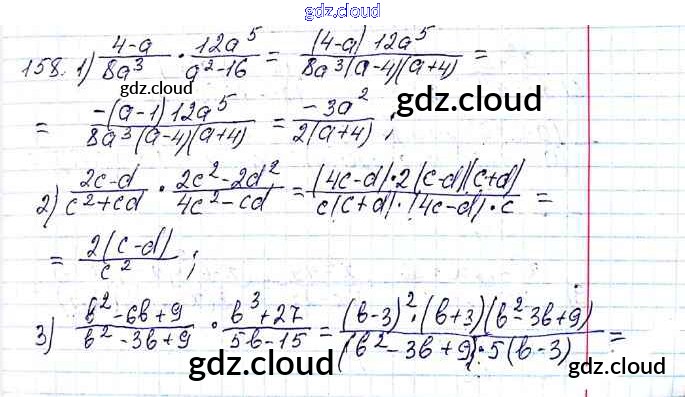 gdz.cloud
158. 1) (4-a)/(8a³) · (12a⁵)/(a²-16) = ((4-a) 12a⁵)/(8a³(a-4)(a+4)) =
= (-(a-1) 12a⁵)/(8a³(a-4)(a+4)) = (-3a²)/(2(a+4));
gdz.cloud
2) (2c-d)/(c²+cd) · (2c²-2d²)/(4c²-cd) = ((4c-d)·2(c-d)(c+d))/(c(c+d)·(4c-d)·c) =
gdz.cloud
= (2(c-d))/(c²);
3) (b²-6b+9)/(b²-3b+9) · (b³+27)/(5b-15) = ((b-3)²·(b+3)(b²-3b+9))/((b²-3b+9)·5(b-3)) =
gdz.cloud
gdz.cloud